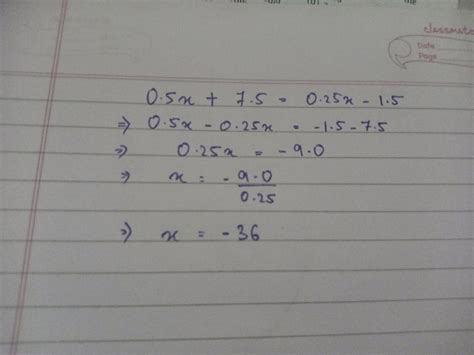 classmate
Date
Page
0.5x + 7.5 = 0.25x - 1.5
⇒ 0.5x - 0.25x = -1.5 - 7.5
⇒ 0.25x = -9.0
⇒ x = -9.0/0.25
⇒ x = -36